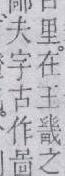 百里。在王畿之
鄙夫字古作啚